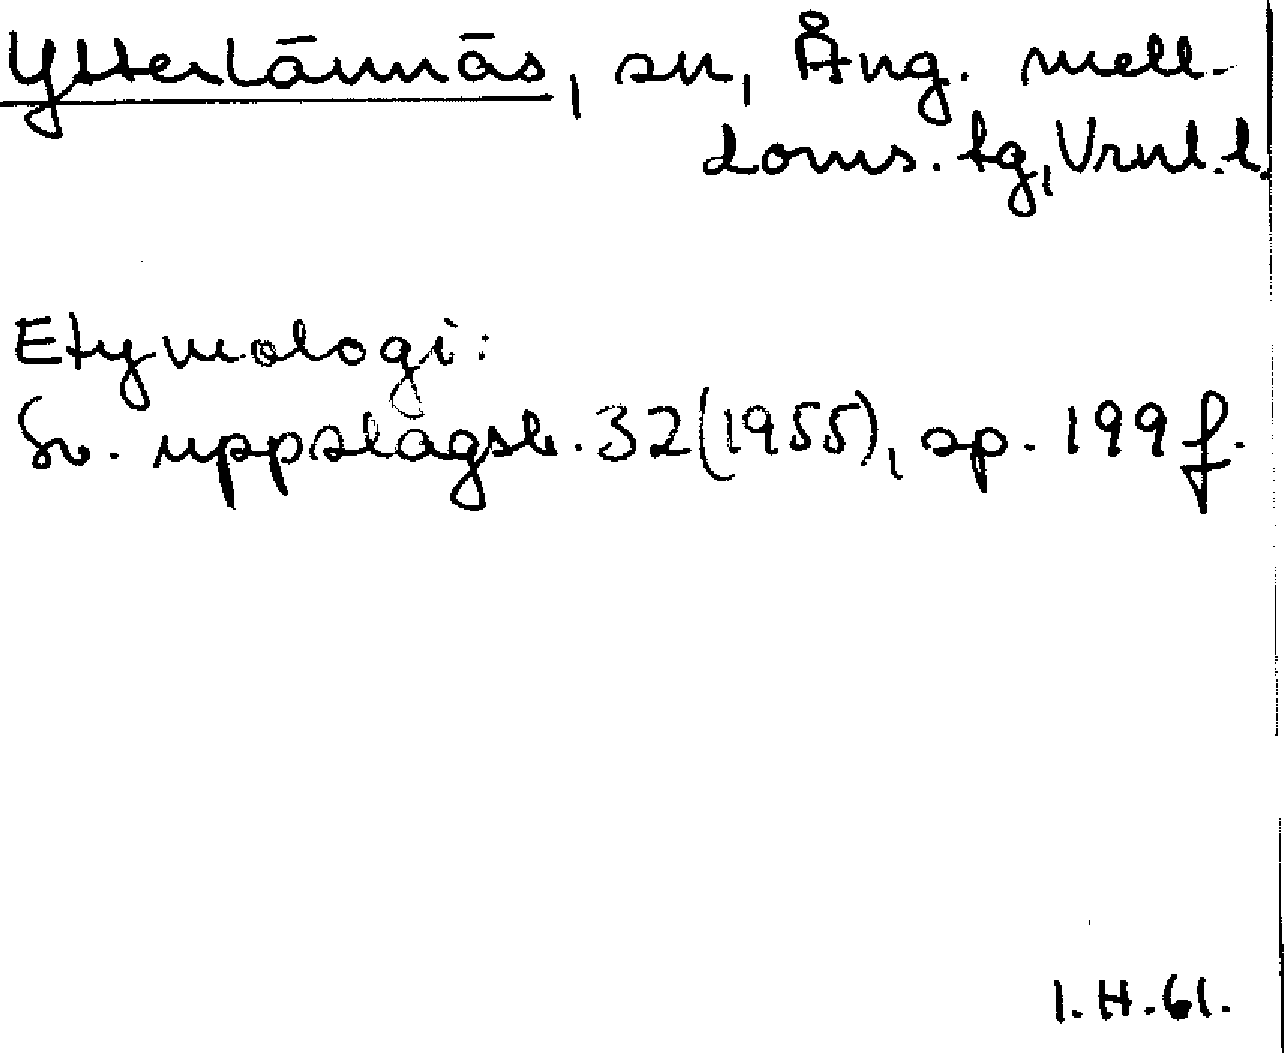 Ytterlännäs, sn, Ång. mell-
doms. tg, Vrnl. l.
Etymologi:
Sv. uppslagsb. 32(1955), sp. 199 f.
I.H.61.